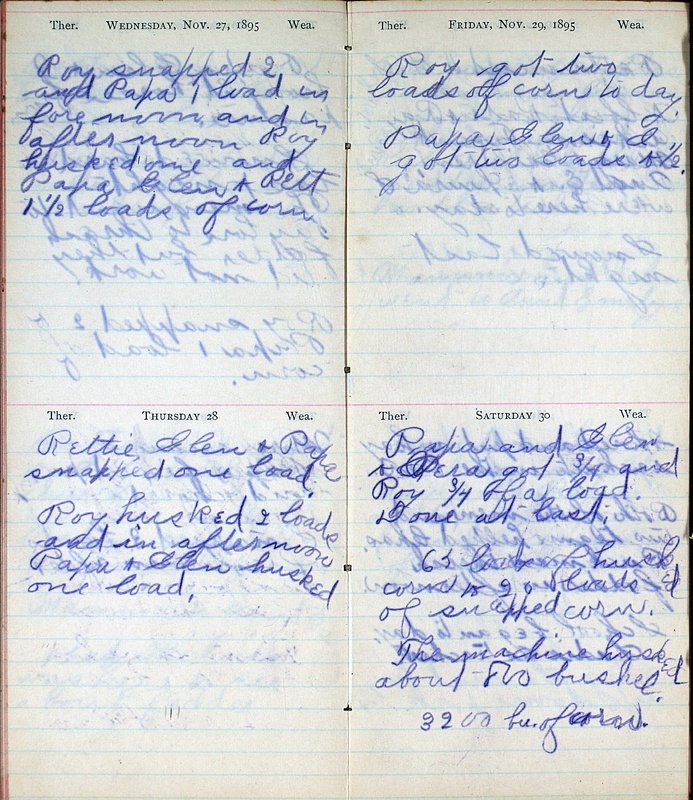 Ther. WEDNESDAY, NOV. 27, 1895 Wea.
Roy snapped 2
and Papa 1 load in
fore noon and in
afternoon Roy
husked one and
Papa Glen & Rett
1 1/2 loads of corn.
Ther. THURSDAY 28 Wea.
Rettie Glen & Papa
snapped one load.
Roy husked 2 loads
and in afternoon
Papa & Glen husked
one load.
Ther. FRIDAY, NOV. 29, 1895 Wea.
Roy got two
loads of corn to day.
Papa Glen & I
got two loads & 1/2.
Ther. SATURDAY 30 Wea.
Papa and Glen
& got 3/4 and
Roy 3/4 of a load.
Done at last.
loads husked
corn loads
of snapped corn.
The machine husked
about 800 bushel.
3200 bu. of corn.